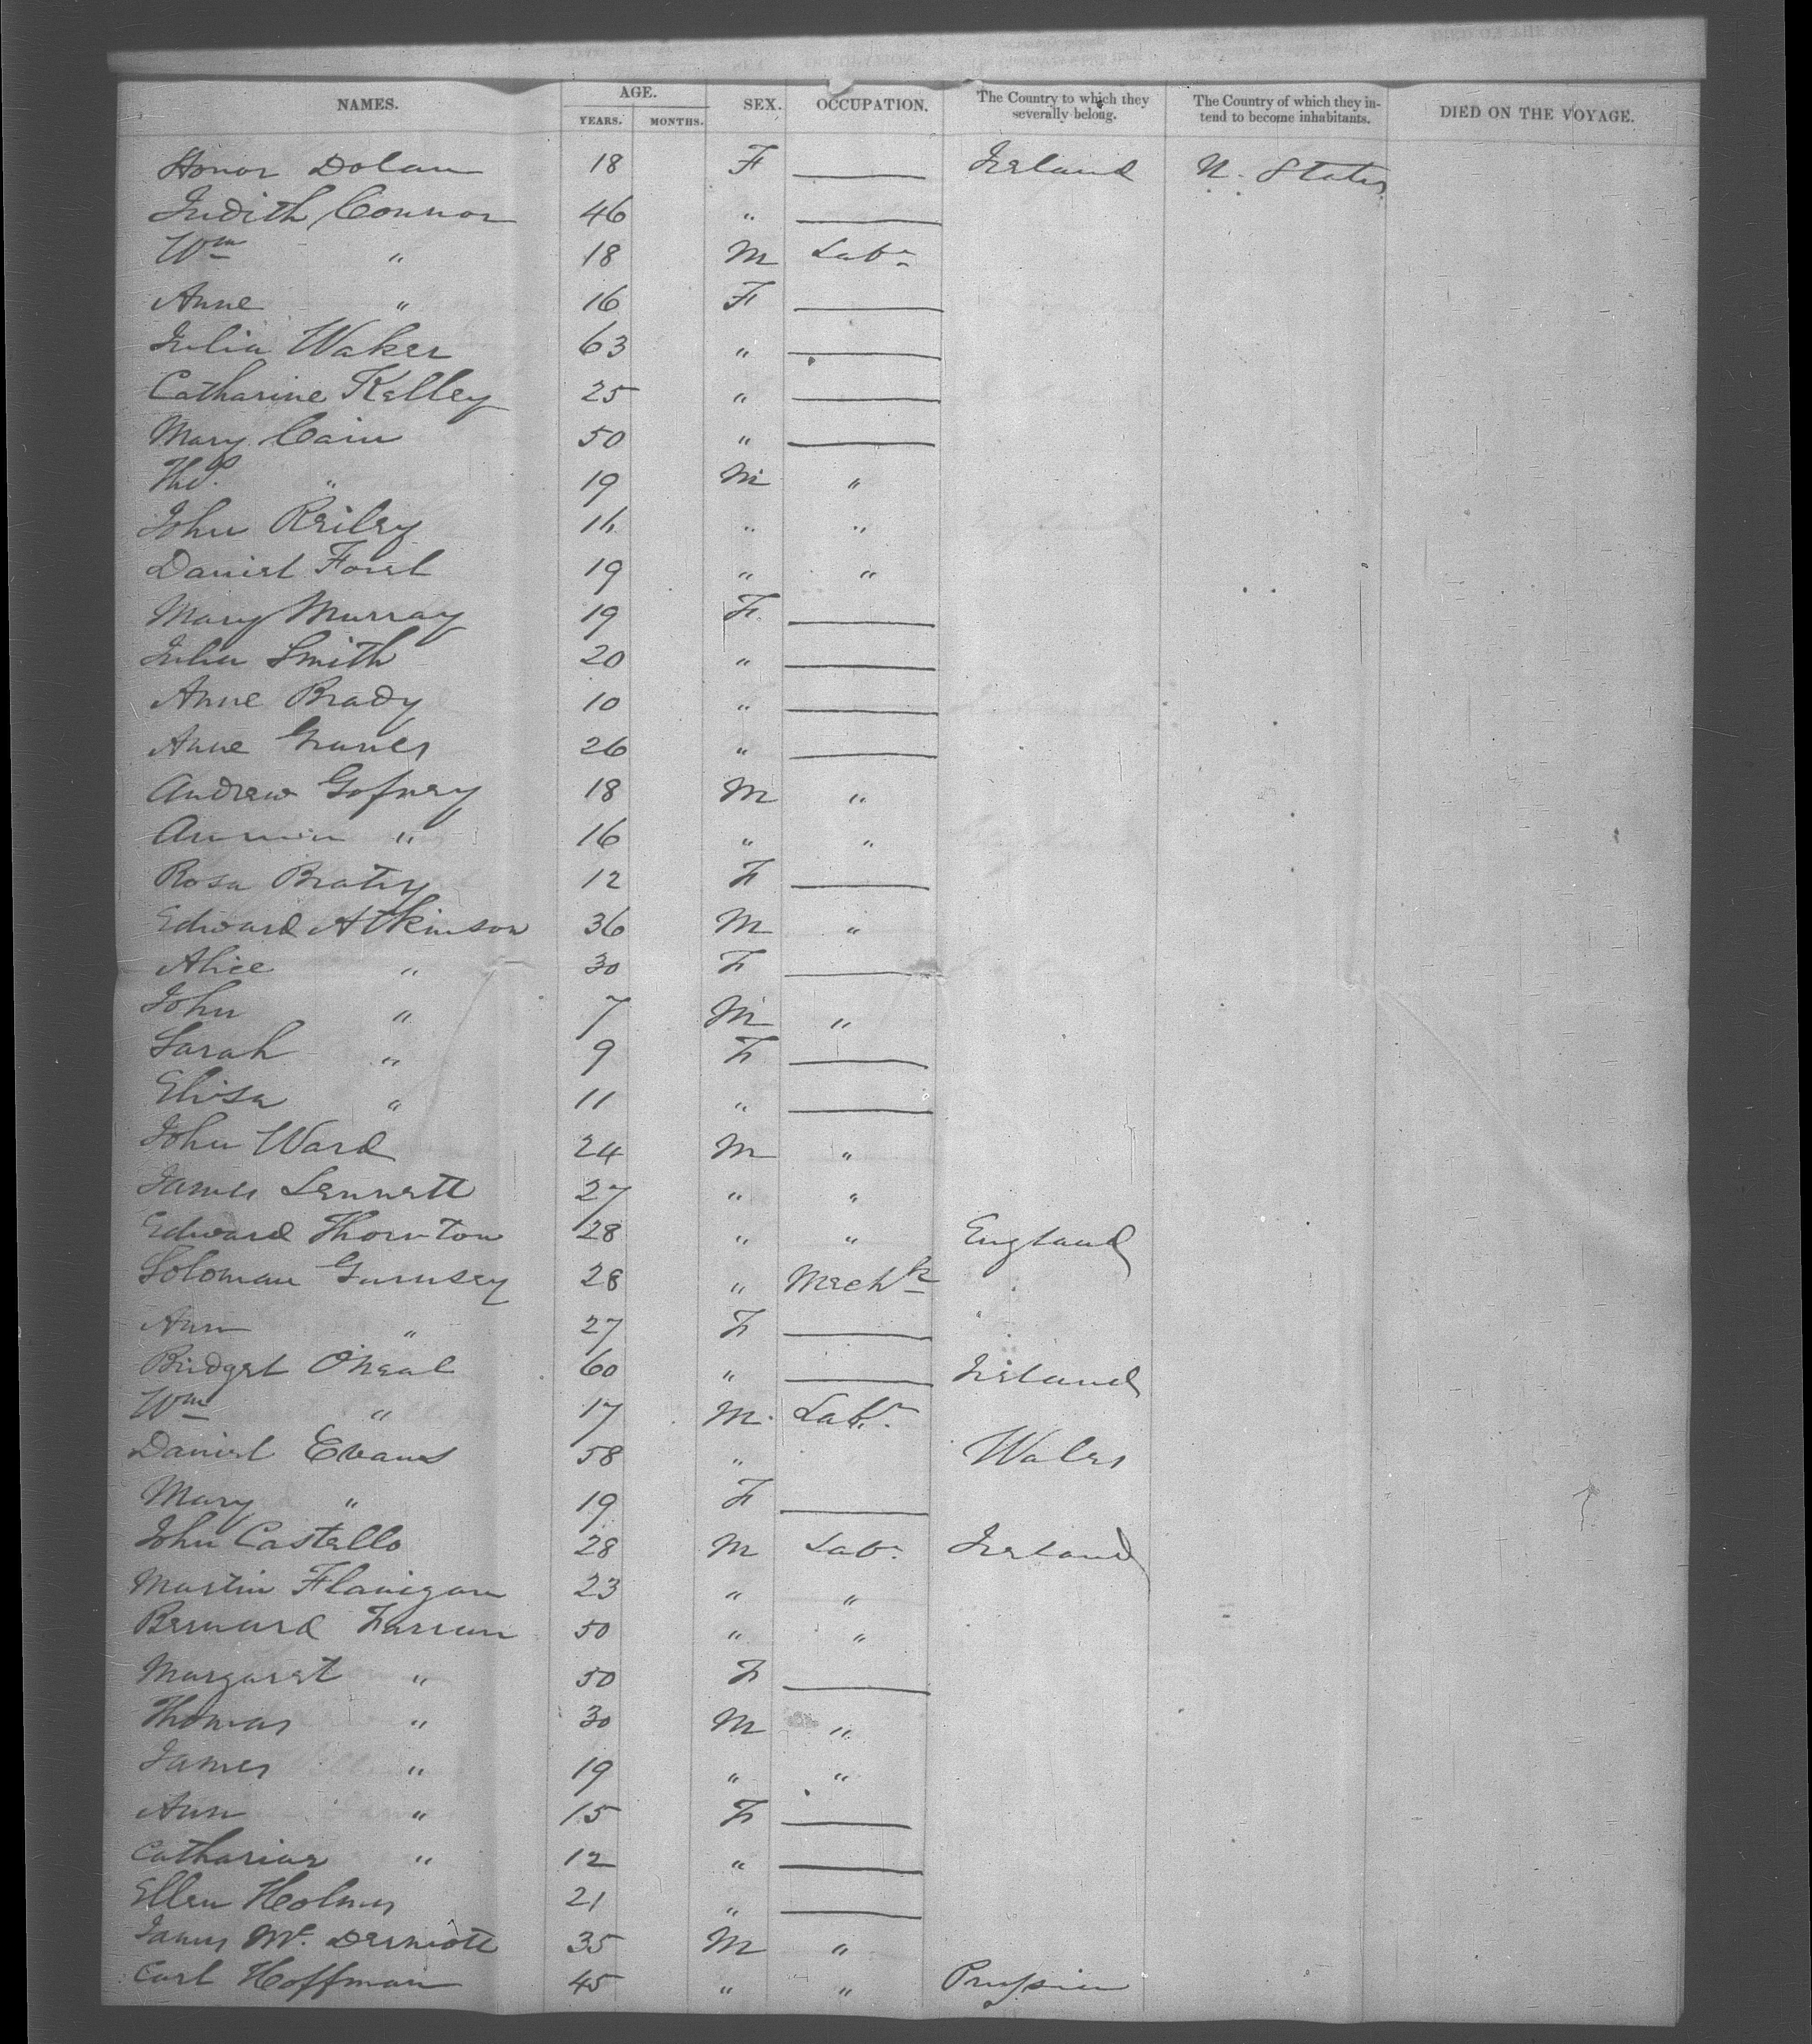 NAMES. AGE. SEX. OCCUPATION. The Country to which they severally belong. The Country of which they intend to become inhabitants. DIED ON THE VOYAGE.
YEARS. MONTHS.
Honor Dolan 18 F Ireland U. States
Judith Connor 46 "
Wm " 18 M Labr
Anne " 16 F
Julia Waker 63 "
Catharine Kelley 25 "
Mary Cain 50 "
Thos. " 19 M "
John Reiley 16 " "
Daniel 19 " "
Mary Murray 19 F
Julia Smith 20 "
Anne Brady 10 "
Anne 26 "
Andrew Gofney 18 M "
" 16 " "
Rosa Braty 12 F
Edward Atkinson 36 M "
Alice " 30 F
John " 7 M "
Sarah " 9 F
Elisa " 11 "
John Ward 24 M "
James Lennett 27 " "
Edward Thornton 28 " " England
Soloman Gurnsey 28 " Mechk "
Ann " 27 F "
Bridget O'Neal 60 " Ireland
Wm " 17 M. Labr
Daniel Evans 58 " Wales
Mary " 19 F
John Castello 28 M Labr Ireland
Martin Flanigan 23 " "
Bernard Farran 50 " "
Margaret " 50 F
Thomas " 30 M "
James " 19 " "
Ann " 15 F
Catharine " 12 "
Ellen Holmes 21 "
James Mc. Dermott 35 M "
Carl Hoffman 45 " " Prussia